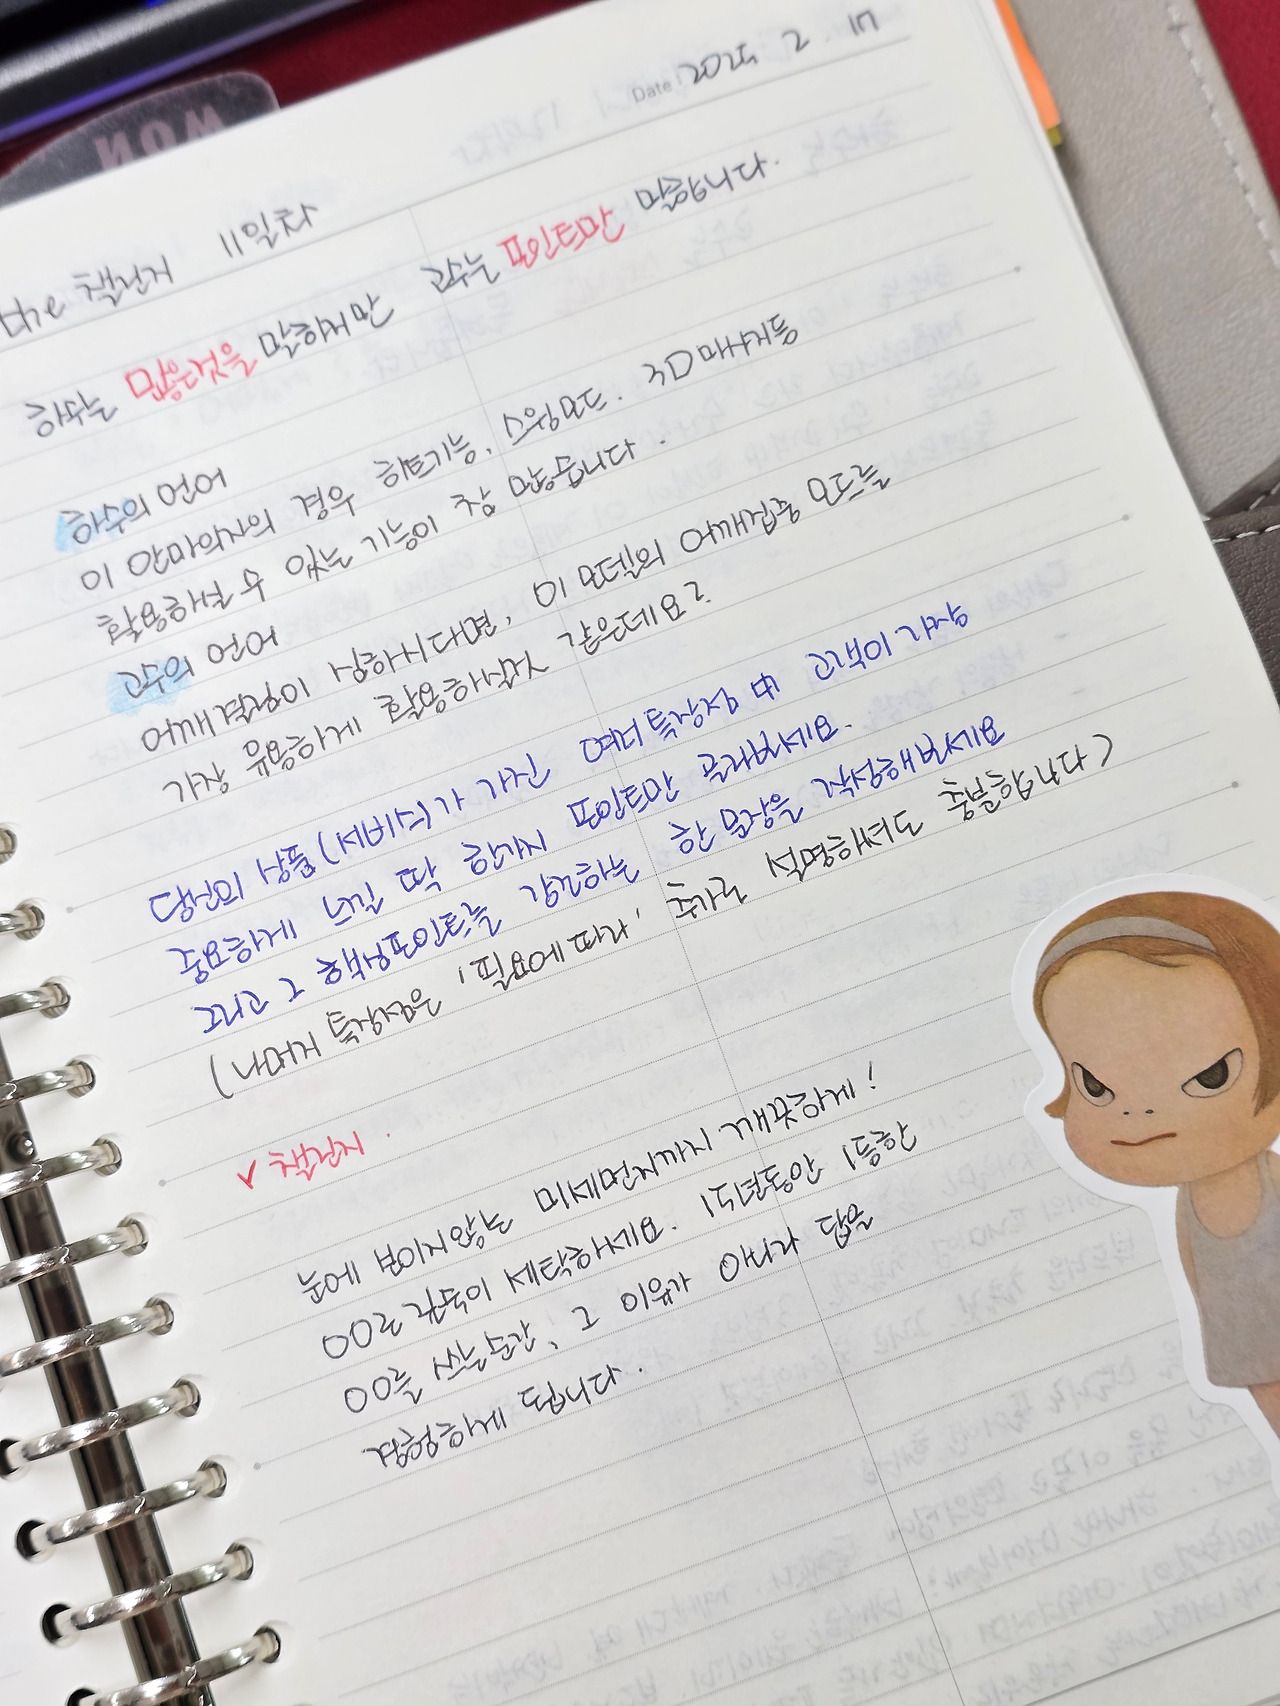 WON
Date 2025. 2. 17
챌린지 11일차
하수는 많은것을 말하지만 고수는 포인트만 말합니다.
하수의 언어
이 안마의자의 경우 히트기능, 스윙모드, 3D마사지등
활용하실 수 있는 기능이 참 많습니다.
고수의 언어
어깨결림이 심하시다면, 이 모델의 어깨집중 모드를
가장 유용하게 활용하실것 같은데요?
당신의 상품(서비스)가 가진 여러특장점 中 고객이 가장
중요하게 느낄 딱 한가지 포인트만 골라보세요.
그리고 그 핵심포인트를 강조하는 한 문장을 작성해보세요
(나머지 특장점은, 필요에 따라, 추가로 설명해드려도 충분합니다)
✓ 챌린지
눈에 보이지않는 미세먼지까지 깨끗하게!
OO로 깊숙이 세탁하세요. 1년된 양말도! 운동화
OO를 쓰는순간, 그 이유가 아니라 답을
경험하게 됩니다.